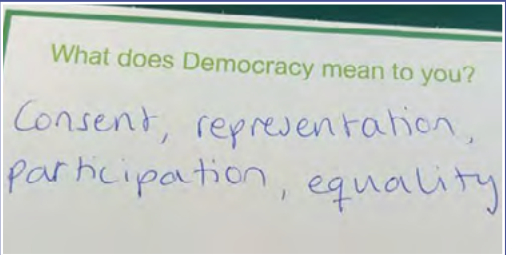 What does Democracy mean to you?
Consent, representation,
participation, equality